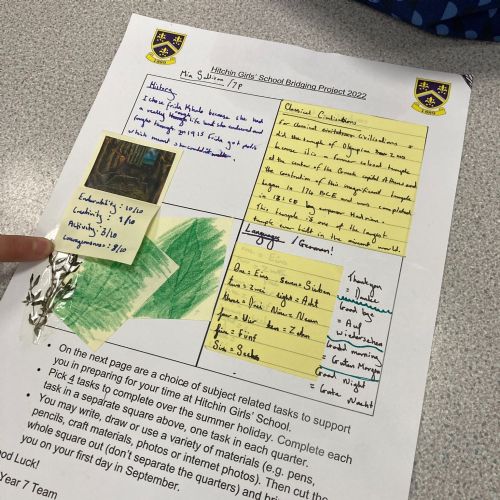 Hitchin Girls' School Bridging Project 2022
1889
1889
Mia Sullivan / 7P
History
I chose Frida Kahalo because she had
a really tough life but she endured and
fought through. In 1925 Frida got polio
which meant she couldn't
Endurability: 10/10
Creativity: 9/10
Activity: 3/10
Courageousness: 8/10
Classical Civilisations
For classical civilisations I
did the temple of Olympian Zeus
because it is a former colossal temple
at the centre of the Greek capital Athens and
the construction of this magnificent temple
began in 174 BCE and was completed
in 131 CE by emperor Hadrian.
This temple is one of the largest
temple ever built in the ancient world.
Languages / German!
One = Eins seven = Sieben
two = Zwei eight = Acht
three = Drei Nine = Neun
four = Vier ten = Zehn
five = Fünf
Six = Sechs
Thankyou
= Danke
Good bye
= Auf
wiedersehen
Good morning
= Guten Morgen
Good Night
= Gute Nacht
• On the next page are a choice of subject related tasks to support
you in preparing for your time at Hitchin Girls' School.
• Pick 4 tasks to complete over the summer holiday. Complete each
task in a separate square above, one task in each quarter.
• You may write, draw or use a variety of materials (e.g. pens,
pencils, craft materials, photos or internet photos). Then cut the
whole square out (don't separate the quarters) and bri
you on your first day in September.
ood Luck!
Year 7 Team